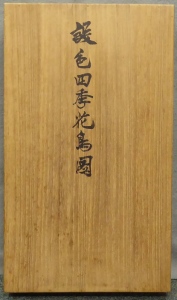 設色四季花鳥圖